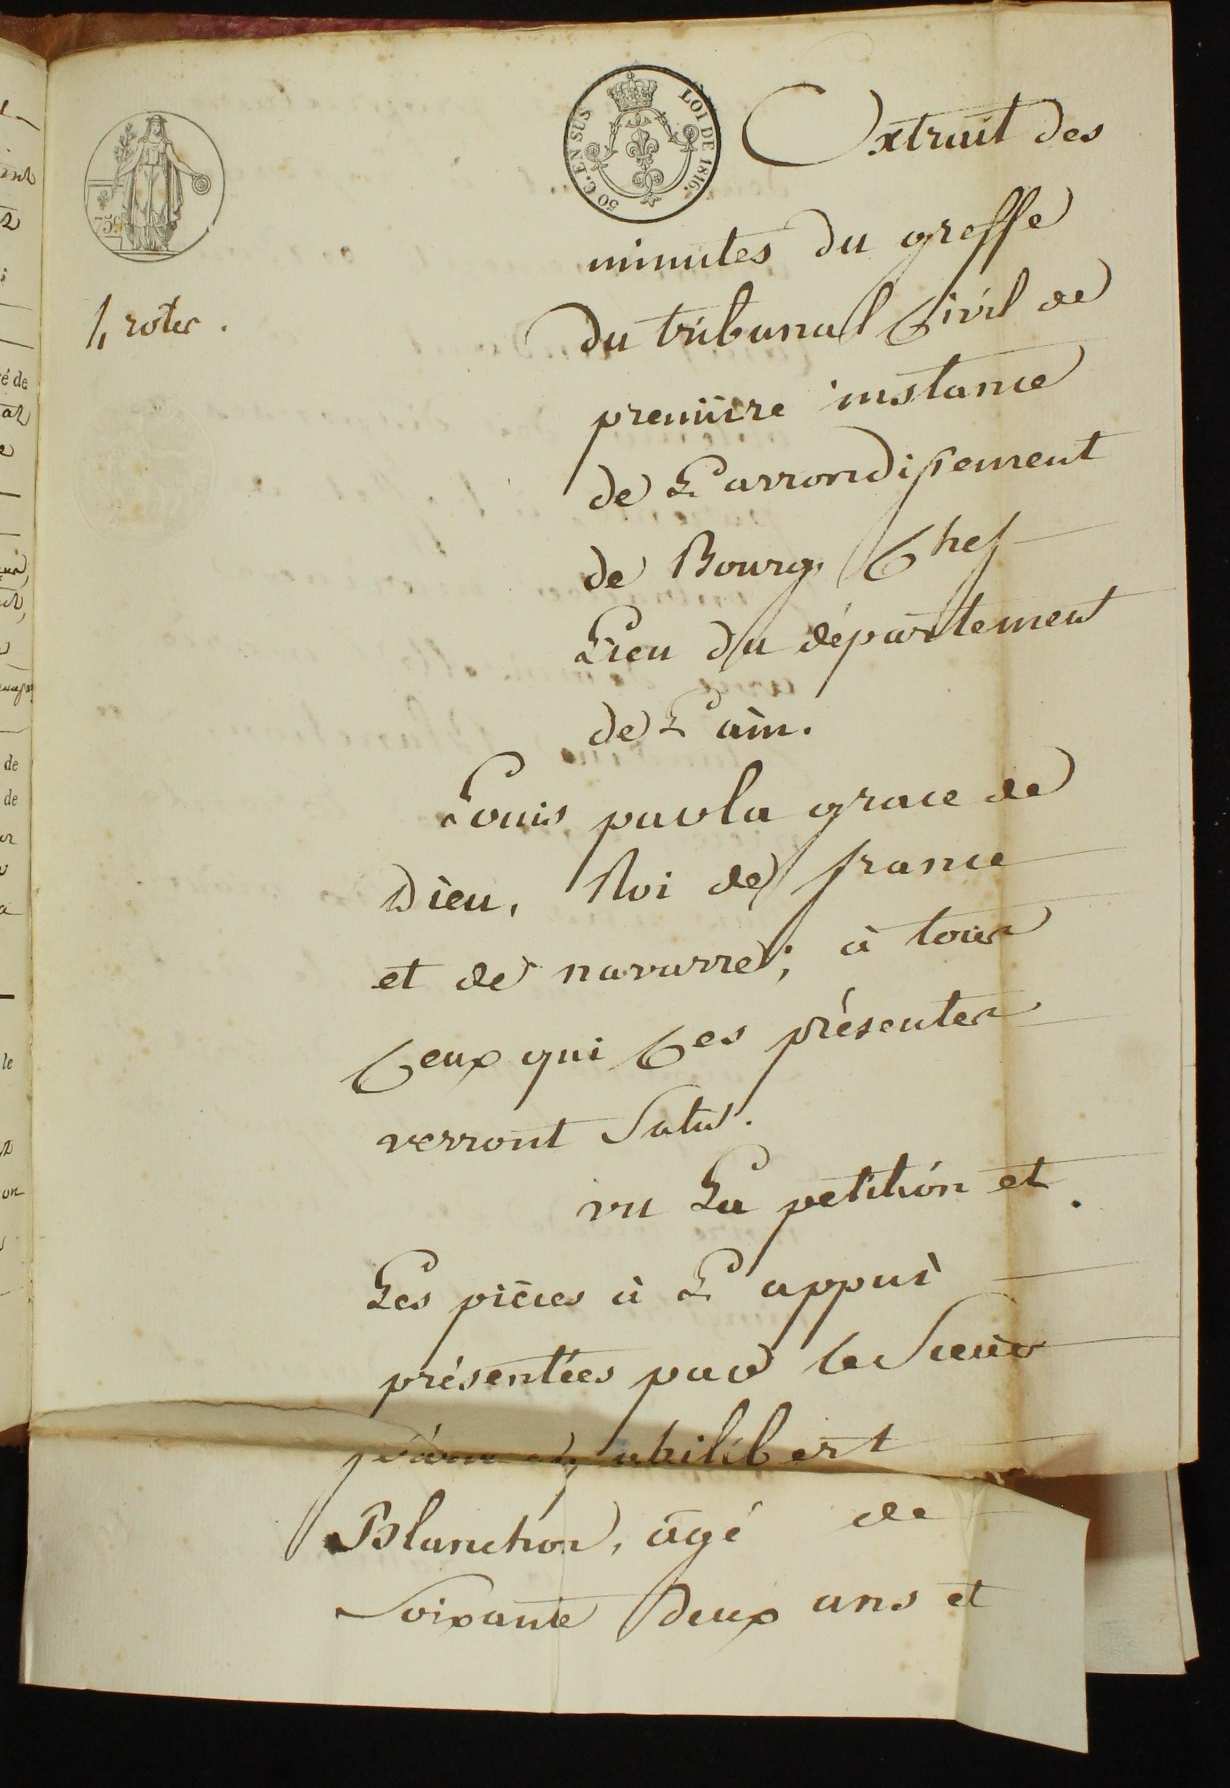 50 C. EN SUS
LOI DE 1816.
75c
4 rôles.
Extrait des
minutes du greffe
du tribunal Civil de
première instance
de L'arrondissement
de Bourg, Chef
Lieu du département
de L'ain.
Louis par la grace de
Dieu, Roi de france
et de navarre; à tous
Ceux qui Ces présentes
verront Salut.
vu La petition et
Les pièces à L'appui
présentées par le Sieur
philibert
Blanchon, âgé de
Soixante deux ans et
é de
de
de
le
on